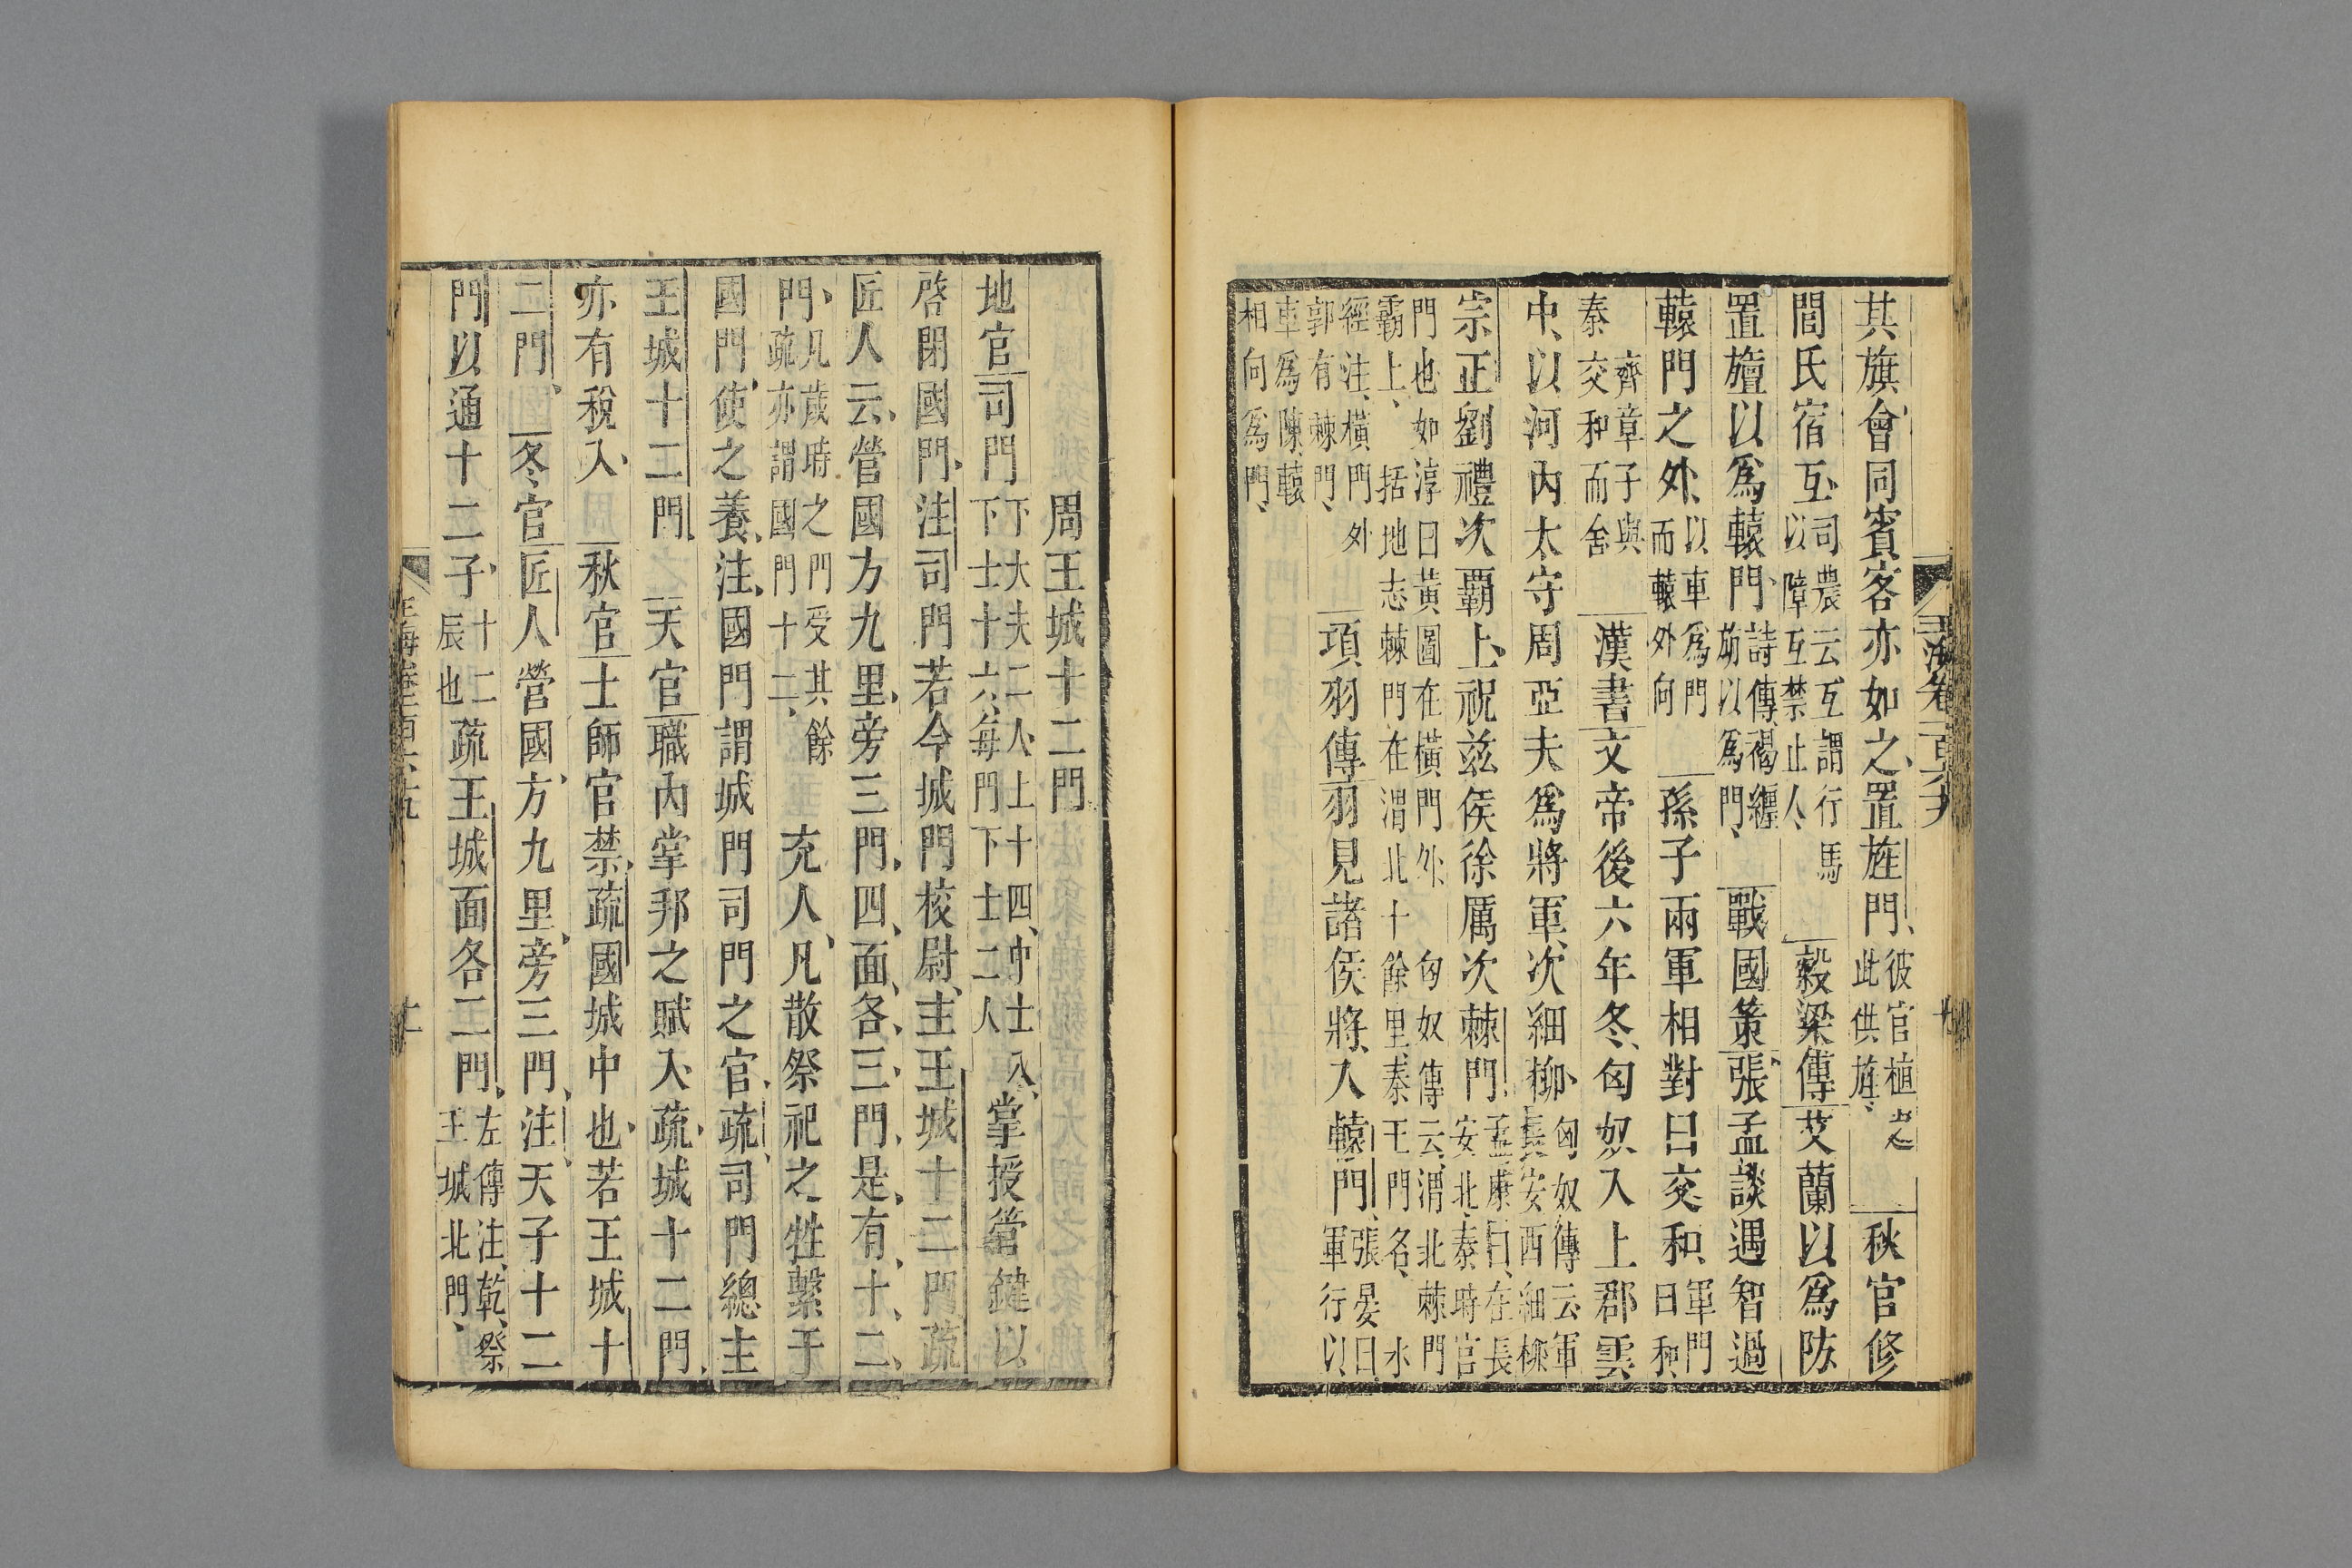 玉海卷一百六十九
其旗會同賓客亦如之置旌門彼官植之此供旌秋官修
閭氏宿互司農云互謂行馬以障互禁止人穀梁傳艾蘭以為防
置旃以為轅門詩傳褐纏旃以為門戰國策張孟談遇智過
轅門之外以車為門而轅外向孫子兩軍相對曰交和軍門曰和
秦齊章子與交和而舍漢書文帝後六年冬匈奴入上郡雲
中以河內太守周亞夫為將軍次細柳匈奴傳云軍長安西細柳
宗正劉禮次霸上祝茲侯徐厲次棘門孟康曰在長安北秦時官
門也如淳曰黃圖在橫門外匈奴傳云渭北棘門霸上括地志棘門在渭北十餘里秦王門名水
經注橫門外郭有棘門項羽傳羽見諸侯將入轅門張晏曰軍行以
車為陳轅相向為門
周王城十二門
地官司門下大夫二人上士四中士八下士十六每門下士二人掌授管鍵以
啓閉國門注司門若今城門校尉主王城十二門疏
匠人云營國方九里旁三門四面各三門是有十二
門凡歲時之門受其餘疏亦謂國門十二充人凡散祭祀之牲繫于
國門使之養注國門謂城門司門之官疏司門總主
王城十二門天官職內掌邦之賦入疏城十二門
亦有稅入秋官士師官禁疏國城中也若王城十
二門冬官匠人營國方九里旁三門注天子十二
門以通十二子十二辰也疏王城面各三門左傳注乾祭王城北門
玉海卷一百六十九
十